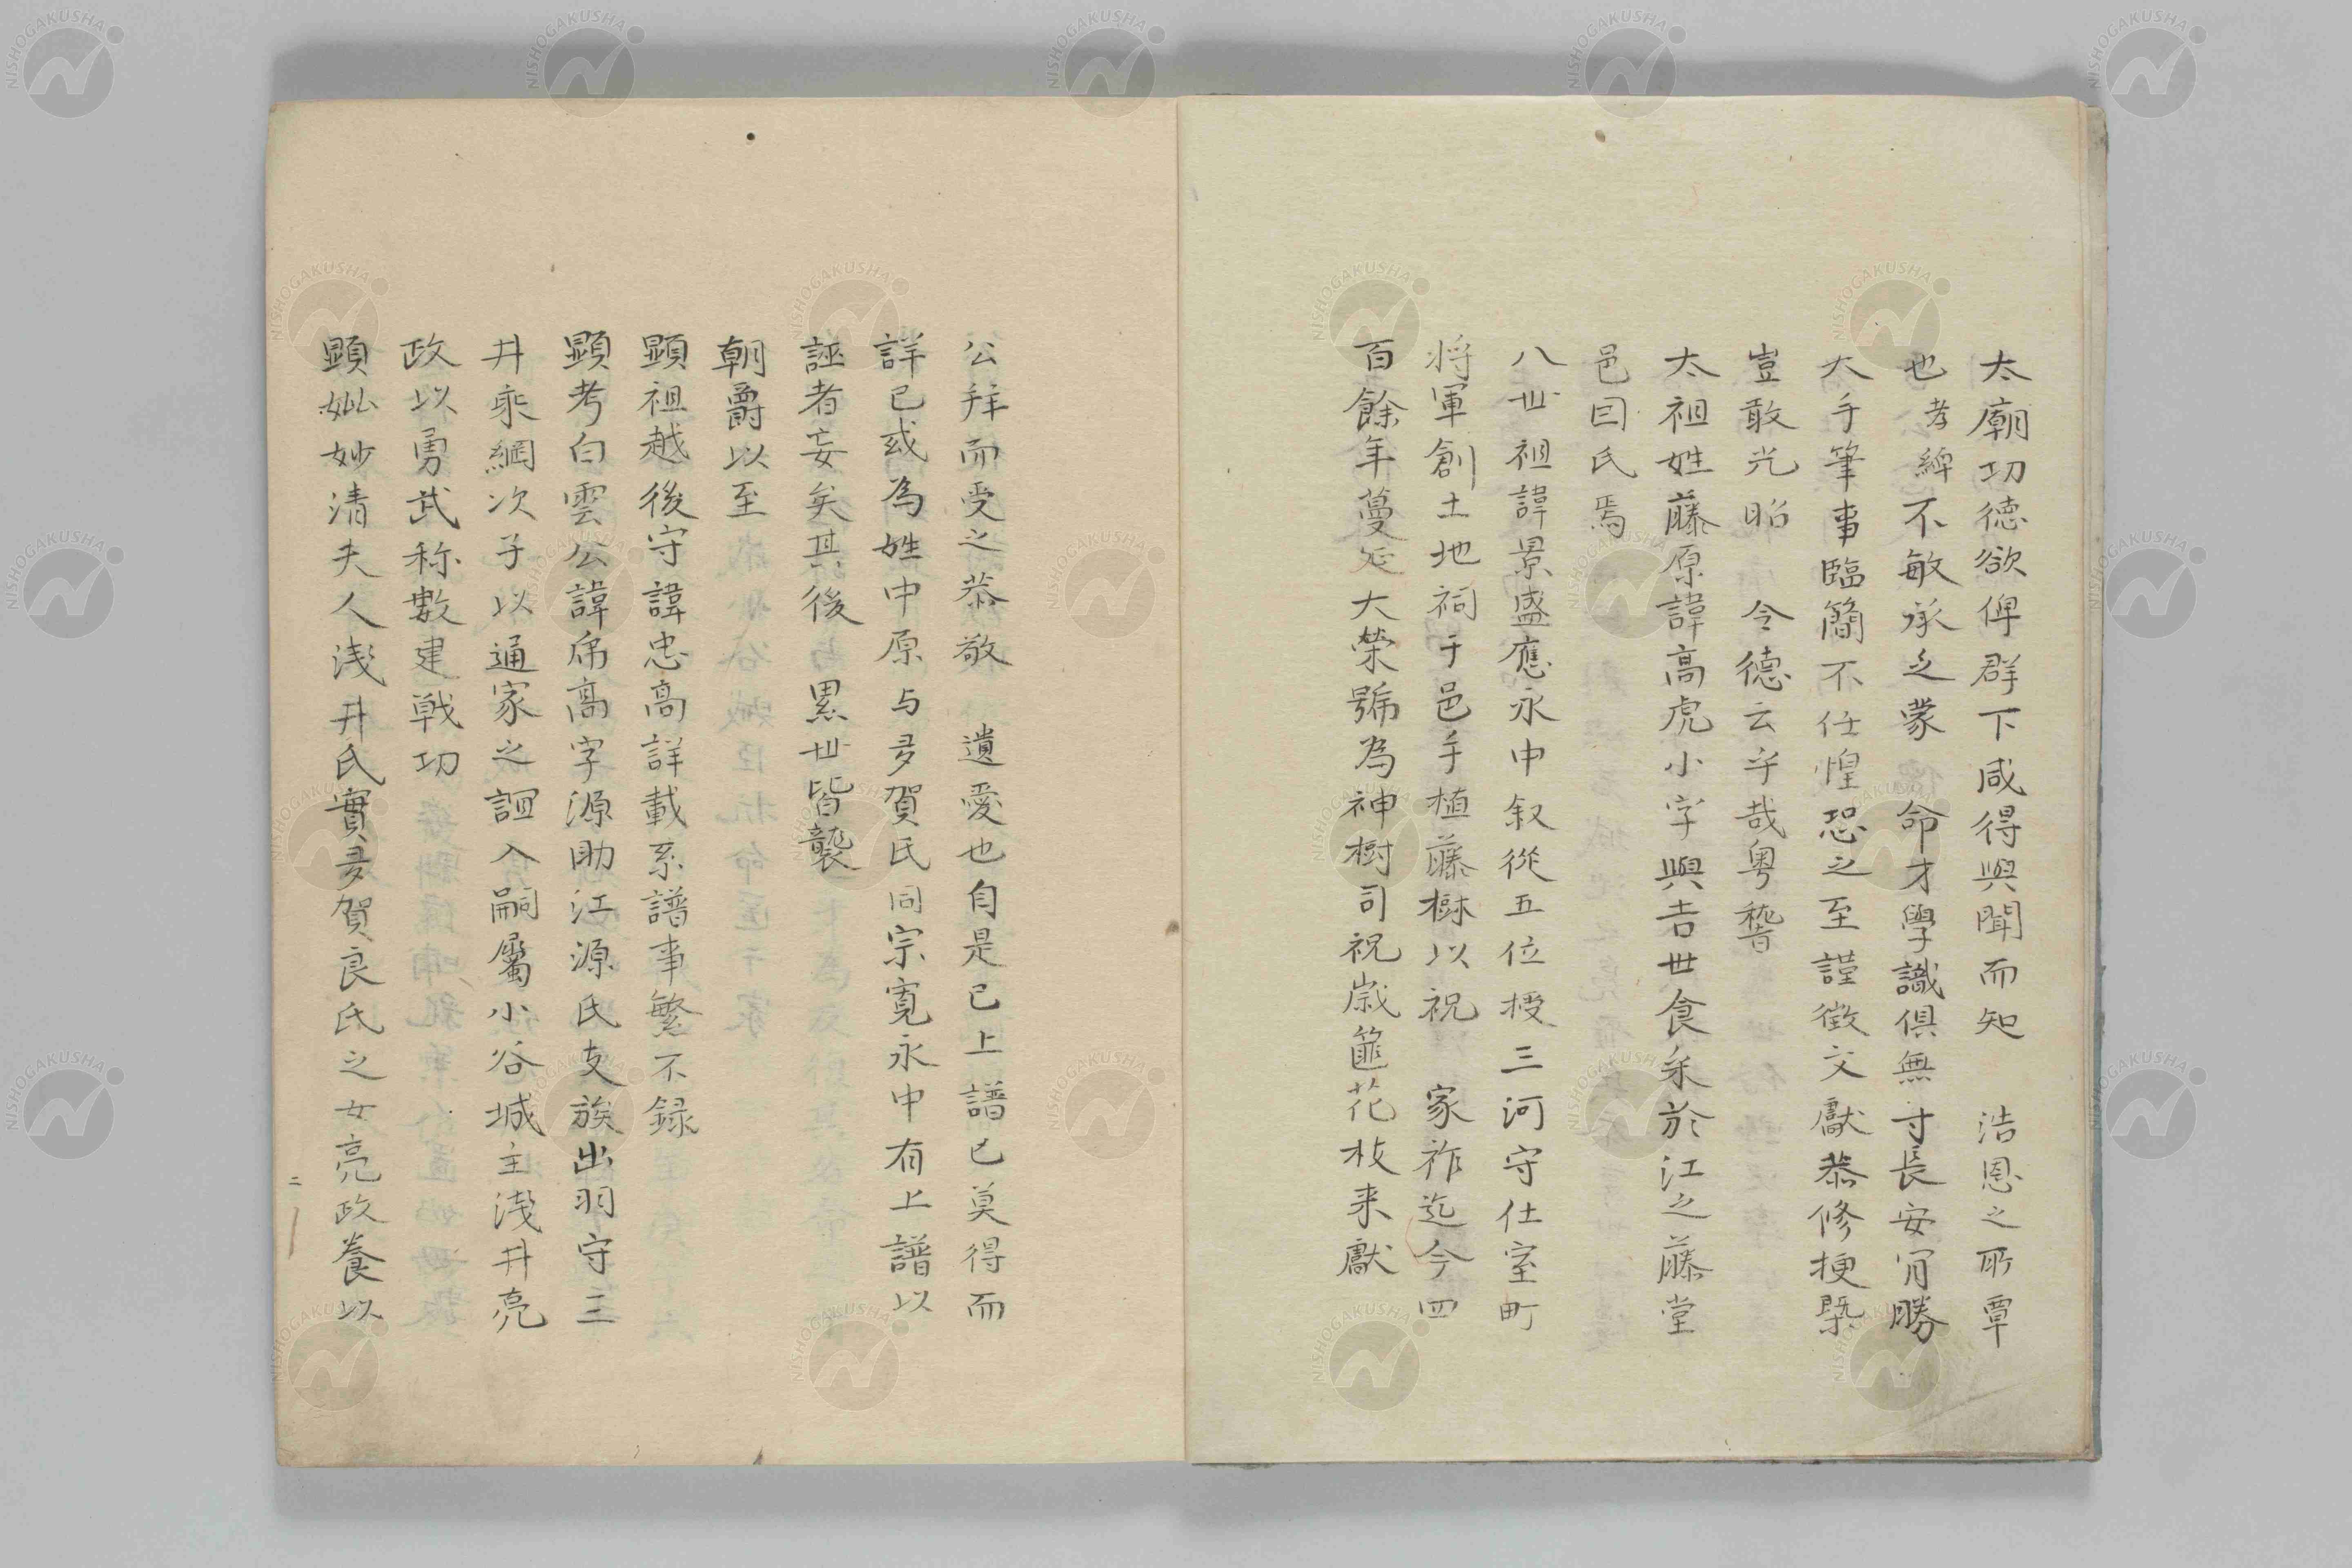 太廟功德欲俾群下咸得與聞而知　浩恩之所覃
也孝綽不敏承之蒙　命才學識俱無寸長安宵勝
大手筆事臨簡不任惶恐之至謹徵文獻恭修梗槩
豈敢光昭　令德云乎哉粤稽
太祖姓藤原諱高虎小字與吉世食采於江之藤堂
邑因氏焉
八世祖諱景盛應永中叙從五位授三河守仕室町
将軍創土地祠于邑手植藤樹以祝　家祚迄今四
百餘年蔓延大榮號為神樹司祝歳篚花枚来獻
公拜而受之恭敬　遺愛也自是已上譜已莫得而
詳已或為姓中原与多賀氏同宗寛永中有上譜以
誣者妄矣其後　累世皆襲
朝爵以至
顕祖越後守諱忠高詳載系譜事繁不録
顕考白雲公諱席高字源助江源氏支族出羽守三
井乘綱次子以通家之誼入嗣屬小谷城主浅井亮
政以勇武称數建戦功
顕妣妙清夫人浅井氏實多賀良氏之女亮政養以
二
NISHOGAKUSHA